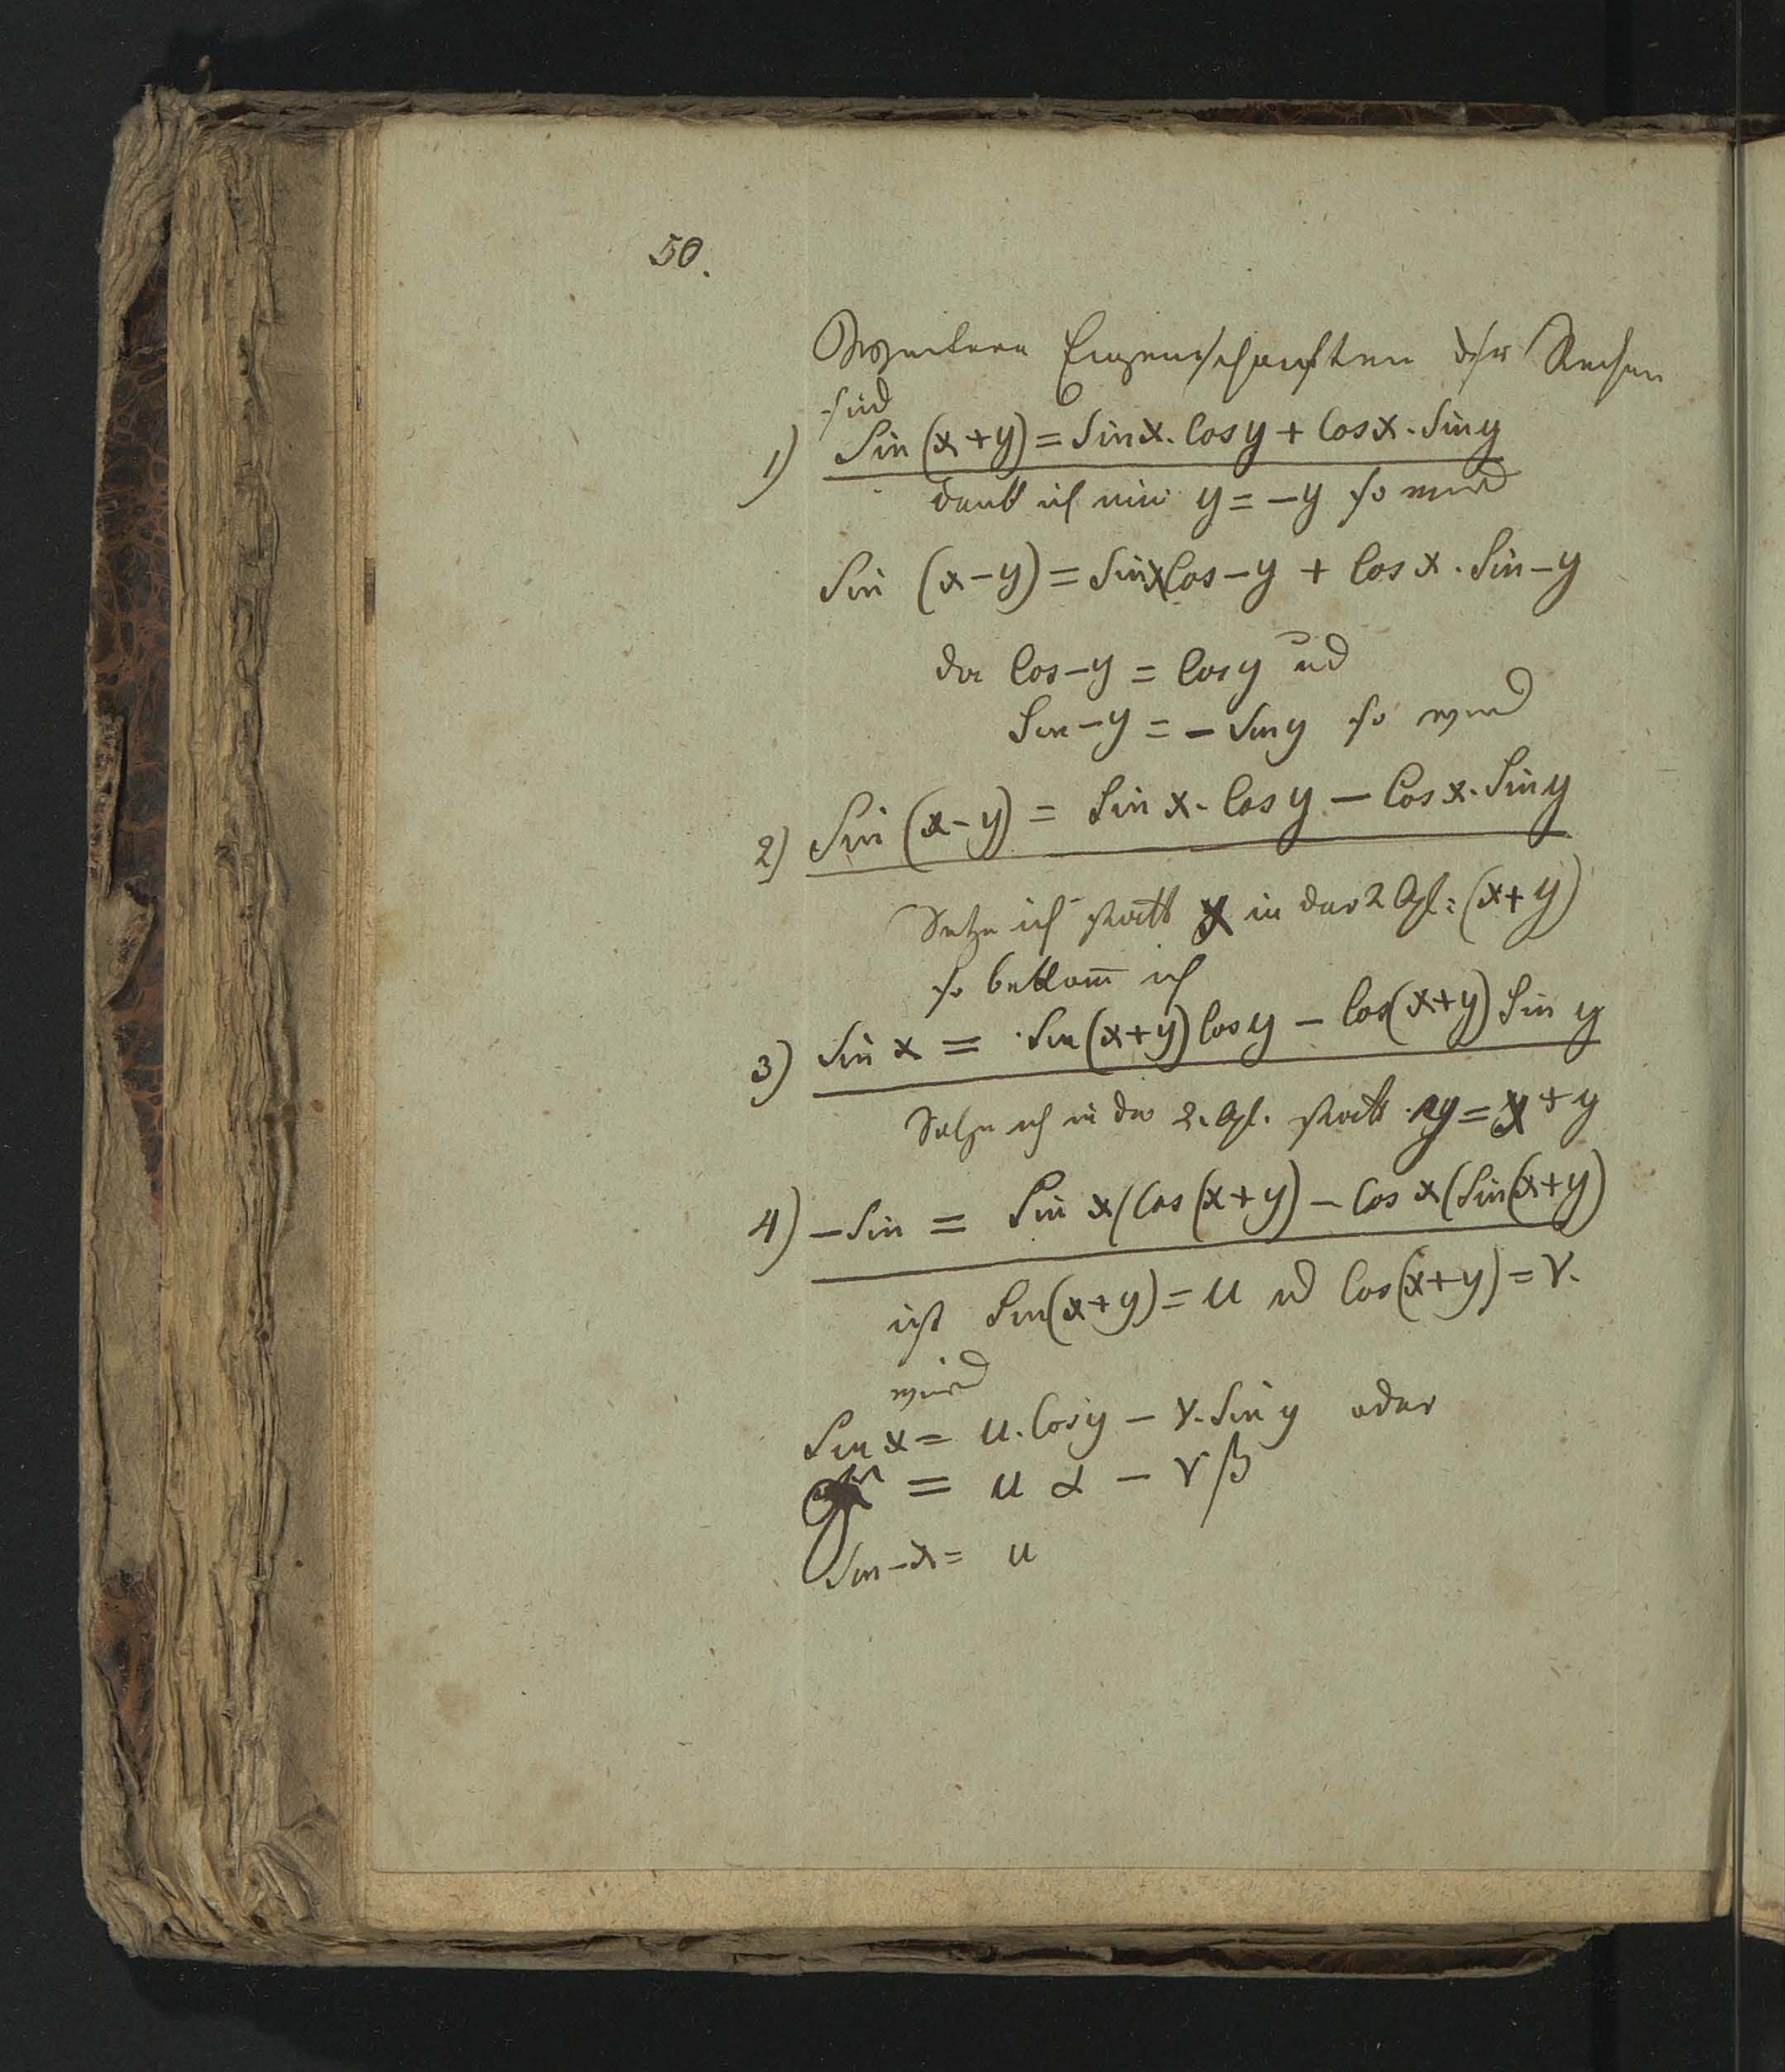 50.
Weitere Eigenschaften der Reihen
sind
1) Sin (x+y) = Sin x. Cos y + Cos x. Sin y
denk ich mir y = -y so wird
Sin (x-y) = Sin x Cos -y + Cos x. Sin -y
da Cos -y = Cos y und
Sin -y = - Sin y so wird
2) Sin (x-y) = Sin x. Cos y - Cos x. Sin y
Setze ich statt x in der 2 Gl: (x+y)
so bekom̅ ich
3) Sin x = Sin (x+y) Cos y - Cos (x+y) Sin y
Setze ich in der 2. Gl. statt y = x + y
4) - Sin = Sin x (Cos (x+y) - Cos x (Sin (x+y)
ist Sin (x+y) = u und Cos (x+y) = v.
wird
Sin x = u. Cos y - v. Sin y oder
= u α - v β
Sin -x = u